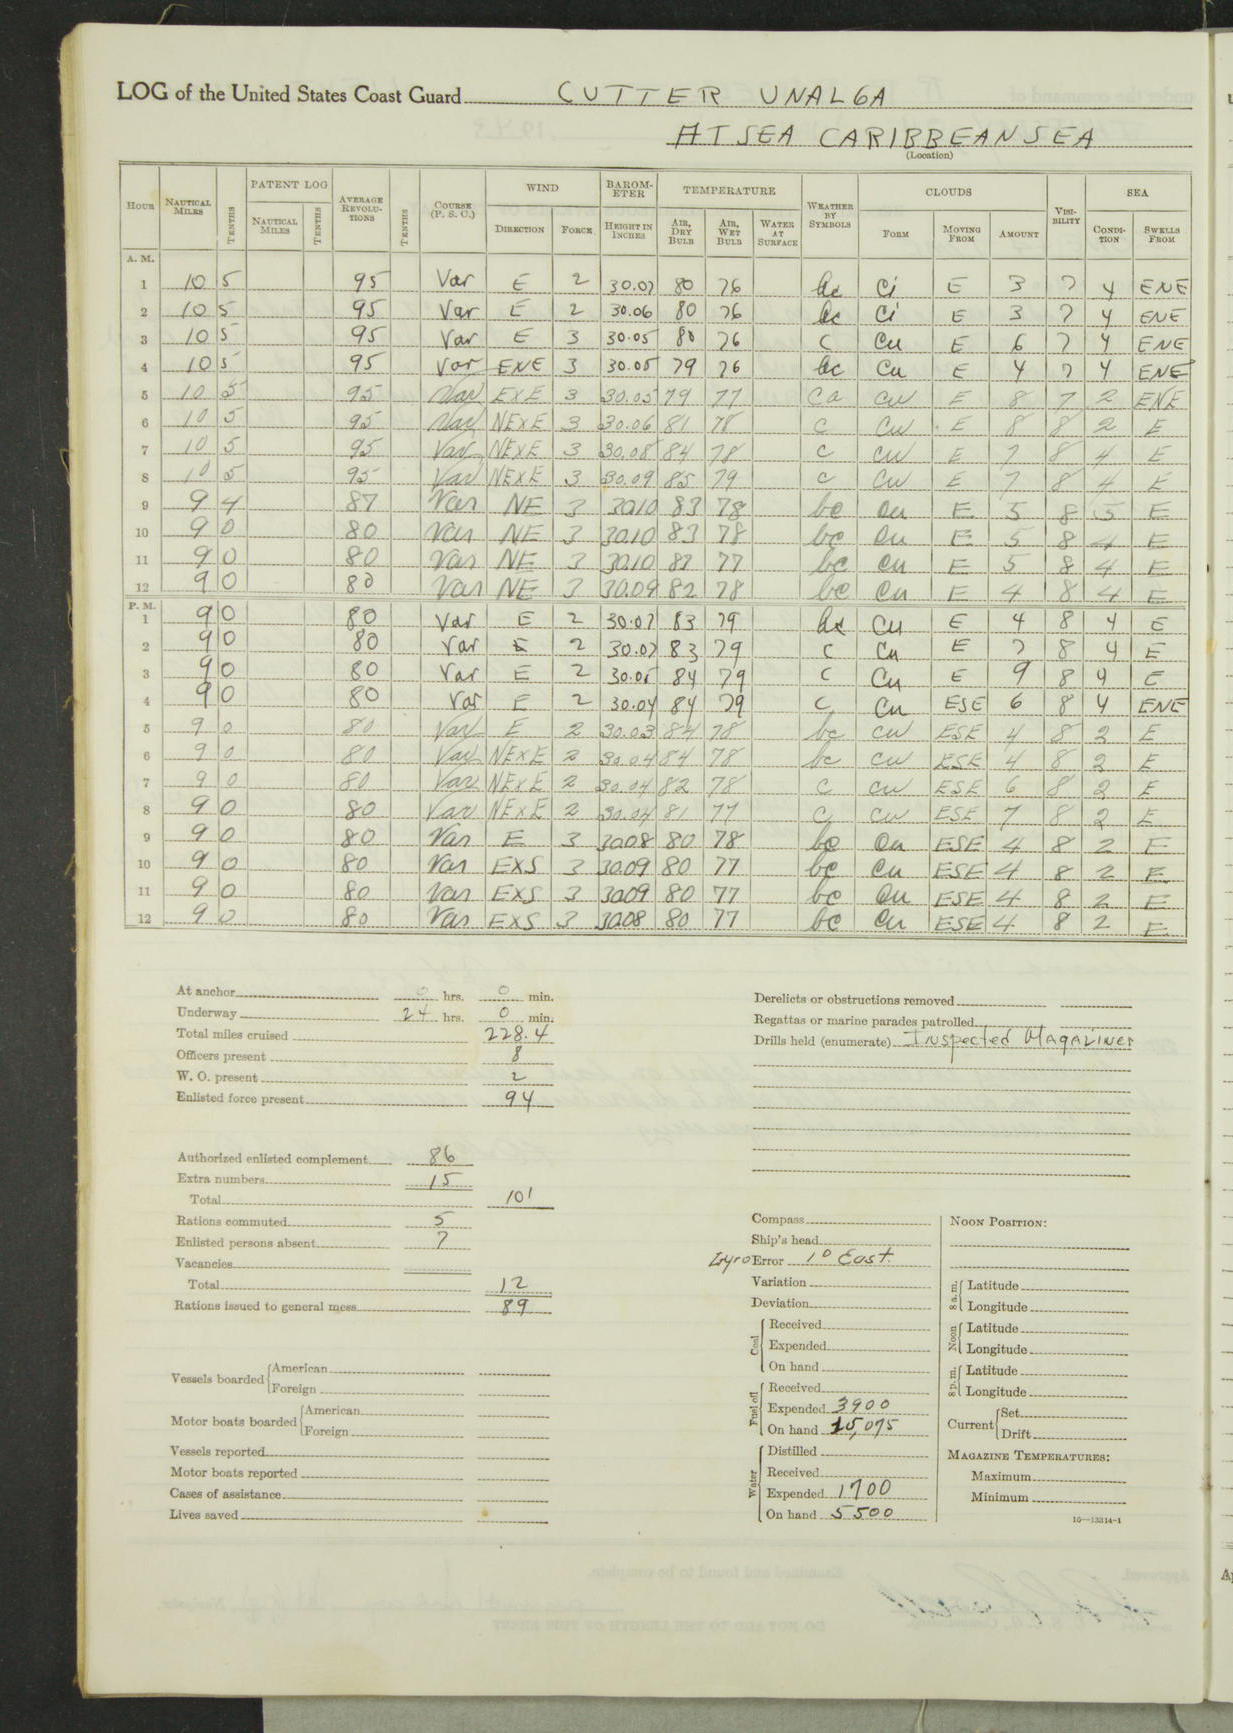 LOG of the United States Coast Guard CUTTER UNALGA
AT SEA CARIBBEAN SEA
(Location)
HOUR NAUTICAL MILES TENTHS PATENT LOG NAUTICAL MILES TENTHS AVERAGE REVOLUTIONS TENTHS COURSE (P. S. C.) WIND DIRECTION FORCE BAROMETER HEIGHT IN INCHES TEMPERATURE AIR, DRY BULB AIR, WET BULB WATER AT SURFACE WEATHER BY SYMBOLS CLOUDS FORM MOVING FROM AMOUNT VISIBILITY SEA CONDITION SWELLS FROM
A. M.
1 10 5 95 Var E 2 30.07 80 76 bc Ci E 3 7 4 ENE
2 10 5 95 Var E 2 30.06 80 76 bc Ci E 3 7 4 ENE
3 10 5 95 Var E 3 30.05 80 76 C Cu E 6 7 4 ENE
4 10 5 95 Var ENE 3 30.05 79 76 bc Cu E 4 7 4 ENE
5 10 5 95 Var EXE 3 30.05 79 77 Ca Cu E 8 7 2 ENE
6 10 5 95 Var NExE 3 30.06 81 78 C Cu E 8 8 2 E
7 10 5 95 Var NExE 3 30.08 84 78 C Cu E 7 8 4 E
8 10 5 95 Var NExE 3 30.09 85 79 C Cu E 7 8 4 E
9 9 4 87 Var NE 3 3010 83 78 bc Cu E 5 8 5 E
10 9 0 80 Var NE 3 3010 83 78 bc Cu E 5 8 4 E
11 9 0 80 Var NE 3 3010 82 77 bc Cu E 5 8 4 E
12 9 0 80 Var NE 3 30.09 82 78 bc Cu E 4 8 4 E
P. M.
1 9 0 80 Var E 2 30.07 83 79 bc Cu E 4 8 4 E
2 9 0 80 Var E 2 30.07 83 79 C Cu E 7 8 4 E
3 9 0 80 Var E 2 30.05 84 79 C Cu E 9 8 4 E
4 9 0 80 Var E 2 30.04 84 79 C Cu ESE 6 8 4 ENE
5 9 0 80 Var E 2 30.03 84 78 bc Cu ESE 4 8 2 E
6 9 0 80 Var NExE 2 30.04 84 78 bc Cu ESE 4 8 2 E
7 9 0 80 Var NExE 2 30.04 82 78 C Cu ESE 6 8 2 E
8 9 0 80 Var NExE 2 30.04 81 77 C Cu ESE 7 8 2 E
9 9 0 80 Var E 3 3008 80 78 bc Cu ESE 4 8 2 E
10 9 0 80 Var EXS 3 3009 80 77 bc Cu ESE 4 8 2 E
11 9 0 80 Var EXS 3 3009 80 77 bc Cu ESE 4 8 2 E
12 9 0 80 Var EXS 3 3008 80 77 bc Cu ESE 4 8 2 E
At anchor 0 hrs. 0 min.
Underway 24 hrs. 0 min.
Total miles cruised 228.4
Officers present 8
W. O. present 2
Enlisted force present 94
Authorized enlisted complement 86
Extra numbers 15
Total 101
Rations commuted 5
Enlisted persons absent 7
Vacancies
Total 12
Rations issued to general mess 89
Vessels boarded American
Foreign
Motor boats boarded American
Foreign
Vessels reported
Motor boats reported
Cases of assistance
Lives saved
Derelicts or obstructions removed
Regattas or marine parades patrolled
Drills held (enumerate) Inspected Magazines
Compass
Ship's head
Gyro Error 1° East
Variation
Deviation
Coal Received
Expended
On hand
Fuel oil Received
Expended 3900
On hand 15,075
Water Distilled
Received
Expended 1700
On hand 5500
NOON POSITION:
8 a. m. Latitude
Longitude
Noon Latitude
Longitude
8 p. m. Latitude
Longitude
Current Set
Drift
MAGAZINE TEMPERATURES:
Maximum
Minimum
16—13314-1